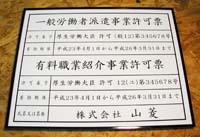 一般労働者派遣事業許可票
許可番号 厚生労働大臣 許可 (般12)第345678号
有効期間 平成23年4月1日から 平成26年3月31日まで
有料職業紹介事業許可票
許可番号 厚生労働大臣 許可 12(ユ)第345678号
有効期間 平成23年4月1日から 平成26年3月31日まで
氏名又は名称 株式会社 山菱